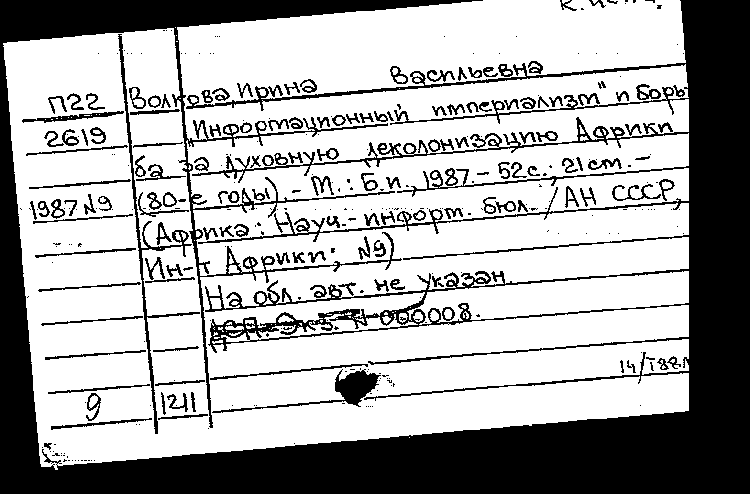 П22 Волкова, Ирина Васильевна
2619 "Информационный империализм" и борь-
ба за духовную деколонизацию Африки
1987 N9 (80-е годы). - М.: Б.и., 1987. - 52 с.; 21 см. -
(Африка: Науч.-информ. бюл. / АН СССР,
Ин-т Африки; N9)
На обл. авт. не указан.
ДСП. Экз. N 000008.
9 1211